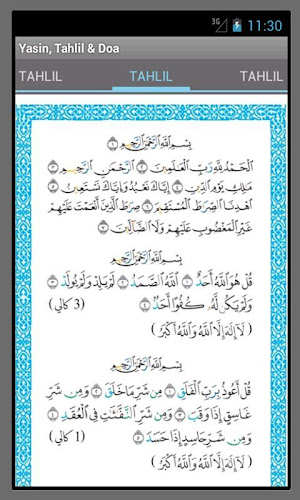 3G 11:30
Yasin, Tahlil & Doa
TAHLIL TAHLIL TAHLIL
بِسْمِ اللَّهِ الرَّحْمَٰنِ الرَّحِيمِ ﴿١﴾
الْحَمْدُ لِلَّهِ رَبِّ الْعَالَمِينَ ﴿٢﴾ الرَّحْمَٰنِ الرَّحِيمِ ﴿٣﴾
مَالِكِ يَوْمِ الدِّينِ ﴿٤﴾ إِيَّاكَ نَعْبُدُ وَإِيَّاكَ نَسْتَعِينُ ﴿٥﴾
اهْدِنَا الصِّرَاطَ الْمُسْتَقِيمَ ﴿٦﴾ صِرَاطَ الَّذِينَ أَنْعَمْتَ عَلَيْهِمْ
غَيْرِ الْمَغْضُوبِ عَلَيْهِمْ وَلَا الضَّالِّينَ ﴿٧﴾
بِسْمِ اللَّهِ الرَّحْمَٰنِ الرَّحِيمِ
قُلْ هُوَ اللَّهُ أَحَدٌ ﴿١﴾ اللَّهُ الصَّمَدُ ﴿٢﴾ لَمْ يَلِدْ وَلَمْ يُولَدْ ﴿٣﴾
وَلَمْ يَكُنْ لَهُ كُفُوًا أَحَدٌ ﴿٤﴾ (3 كالي)
(لَا إِلَهَ إِلَّا اللَّهُ وَاللَّهُ أَكْبَرُ)
بِسْمِ اللَّهِ الرَّحْمَٰنِ الرَّحِيمِ
قُلْ أَعُوذُ بِرَبِّ الْفَلَقِ ﴿١﴾ مِنْ شَرِّ مَا خَلَقَ ﴿٢﴾ وَمِنْ شَرِّ
غَاسِقٍ إِذَا وَقَبَ ﴿٣﴾ وَمِنْ شَرِّ النَّفَّاثَاتِ فِي الْعُقَدِ ﴿٤﴾
وَمِنْ شَرِّ حَاسِدٍ إِذَا حَسَدَ ﴿٥﴾ (1 كالي)
(لَا إِلَهَ إِلَّا اللَّهُ وَاللَّهُ أَكْبَرُ)